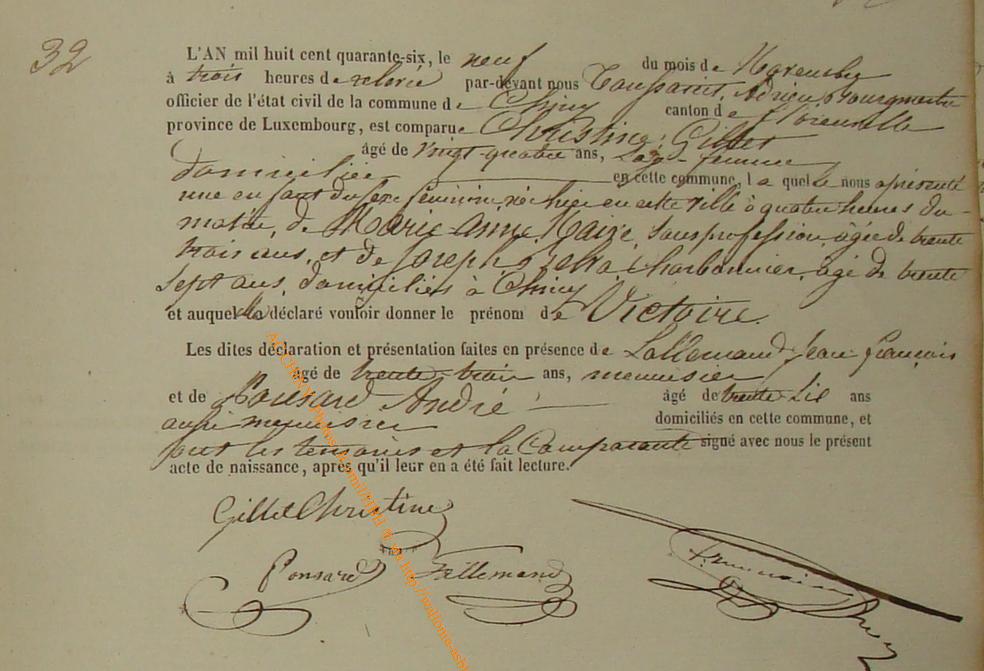 32
L'AN mil huit cent quarante-six, le neuf du mois de Novembre
à trois heures de relevée par-devant nous Toussaint, Adrien Bourgmestre
officier de l'état civil de la commune de Chiny canton de Florenville
province de Luxembourg, est comparue Christine Gillet
âgé de vingt-quatre ans, Sage-femme
domiciliée en cette commune, laquelle nous a présenté
une enfant du sexe féminin, née hier en cette ville à quatre heures du
matin, de Marie Anne Maize, sans profession, âgée de trente
trois ans, et de Joseph charbonnier, âgé de trente
sept ans, domiciliés à Chiny
et auquel elle a déclaré vouloir donner le prénom de Victoire.
Les dites déclaration et présentation faites en présence de Lallemand Jean François
âgé de trente-trois ans, menuisier
et de Ponsard André âgé de trente six ans
aussi menuisier domiciliés en cette commune, et
ont les témoins et la Comparante signé avec nous le présent
acte de naissance, après qu'il leur en a été fait lecture.
Gillet Christine
Ponsard Lallemand